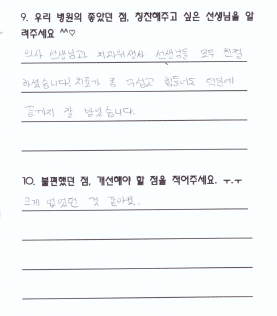 9. 우리 병원의 좋았던 점, 칭찬해주고 싶은 선생님을 알
려주세요 ^^♡
의사 선생님과 치과위생사 선생님들 모두 친절
하셨습니다! 치료가 좀 무섭고 힘들어도 덕분에
끝까지 잘 받았습니다.
10. 불편했던 점, 개선해야 할 점을 적어주세요. ㅜ.ㅜ
크게 없었던 것 같아요.